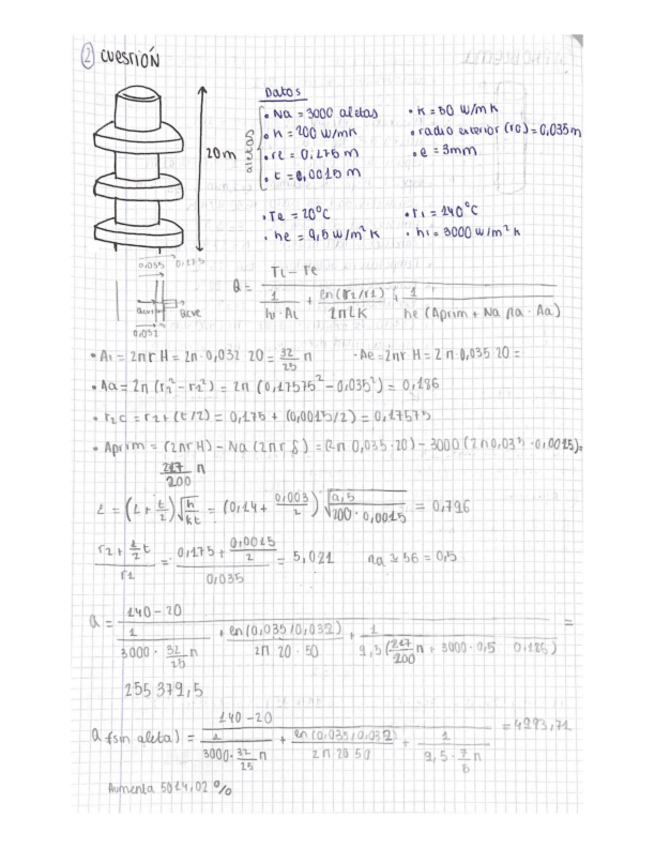 ② CUESTIÓN
Datos
aletas
• Na = 3000 aletas
• K = 50 W/m K
• h = 200 W/mK
• radio exterior (ro) = 0,035m
• re = 0,175 m
• e = 3mm
• t = 0,0015 m
20m
• Te = 20°C
• Ti = 140°C
• he = 9,5 W/m² K
• hi = 3000 W/m² K
0,035 0,175
0,032
Q = Ti - Te / 1/(hi·Ai) + ln(r2/r1)/(2πLK) + 1/(he (Aprim + Na ηa · Aa))
• Ai = 2πr H = 2π · 0,032 20 = 32/25 π · Ae = 2πr H = 2 π · 0,035 20 =
• Aa = 2π (r2² - r1²) = 2π (0,17575² - 0,035²) = 0,186
• r2c = r2 + (t/2) = 0,175 + (0,0015/2) = 0,17575
• Aprim = (2πr H) - Na (2πr δ) = (2π 0,035·20) - 3000 (2π 0,035 · 0,0015) =
217/200 π
L = (L + t/2) √(h/kt) = (0,14 + 0,003/2) √(9,5/(200 · 0,0015)) = 0,796
(r2 + ½t)/r1 = (0,175 + 0,0015/2)/0,035 = 5,021 ηa ≅ 56 = 0,5
Q = 140-20 / 1/(3000 · 32/25 π) + ln(0,035/0,032)/(2π 20 · 50) + 1/(9,5 (217/200 π + 3000 · 0,5 0,186)) =
255 379,5
Q (sin aleta) = 140-20 / 1/(3000 · 32/25 π) + ln(0,035/0,032)/(2π 20 50) + 1/(9,5 · 7/5 π) = 4993,71
Aumenta 5014,02 %